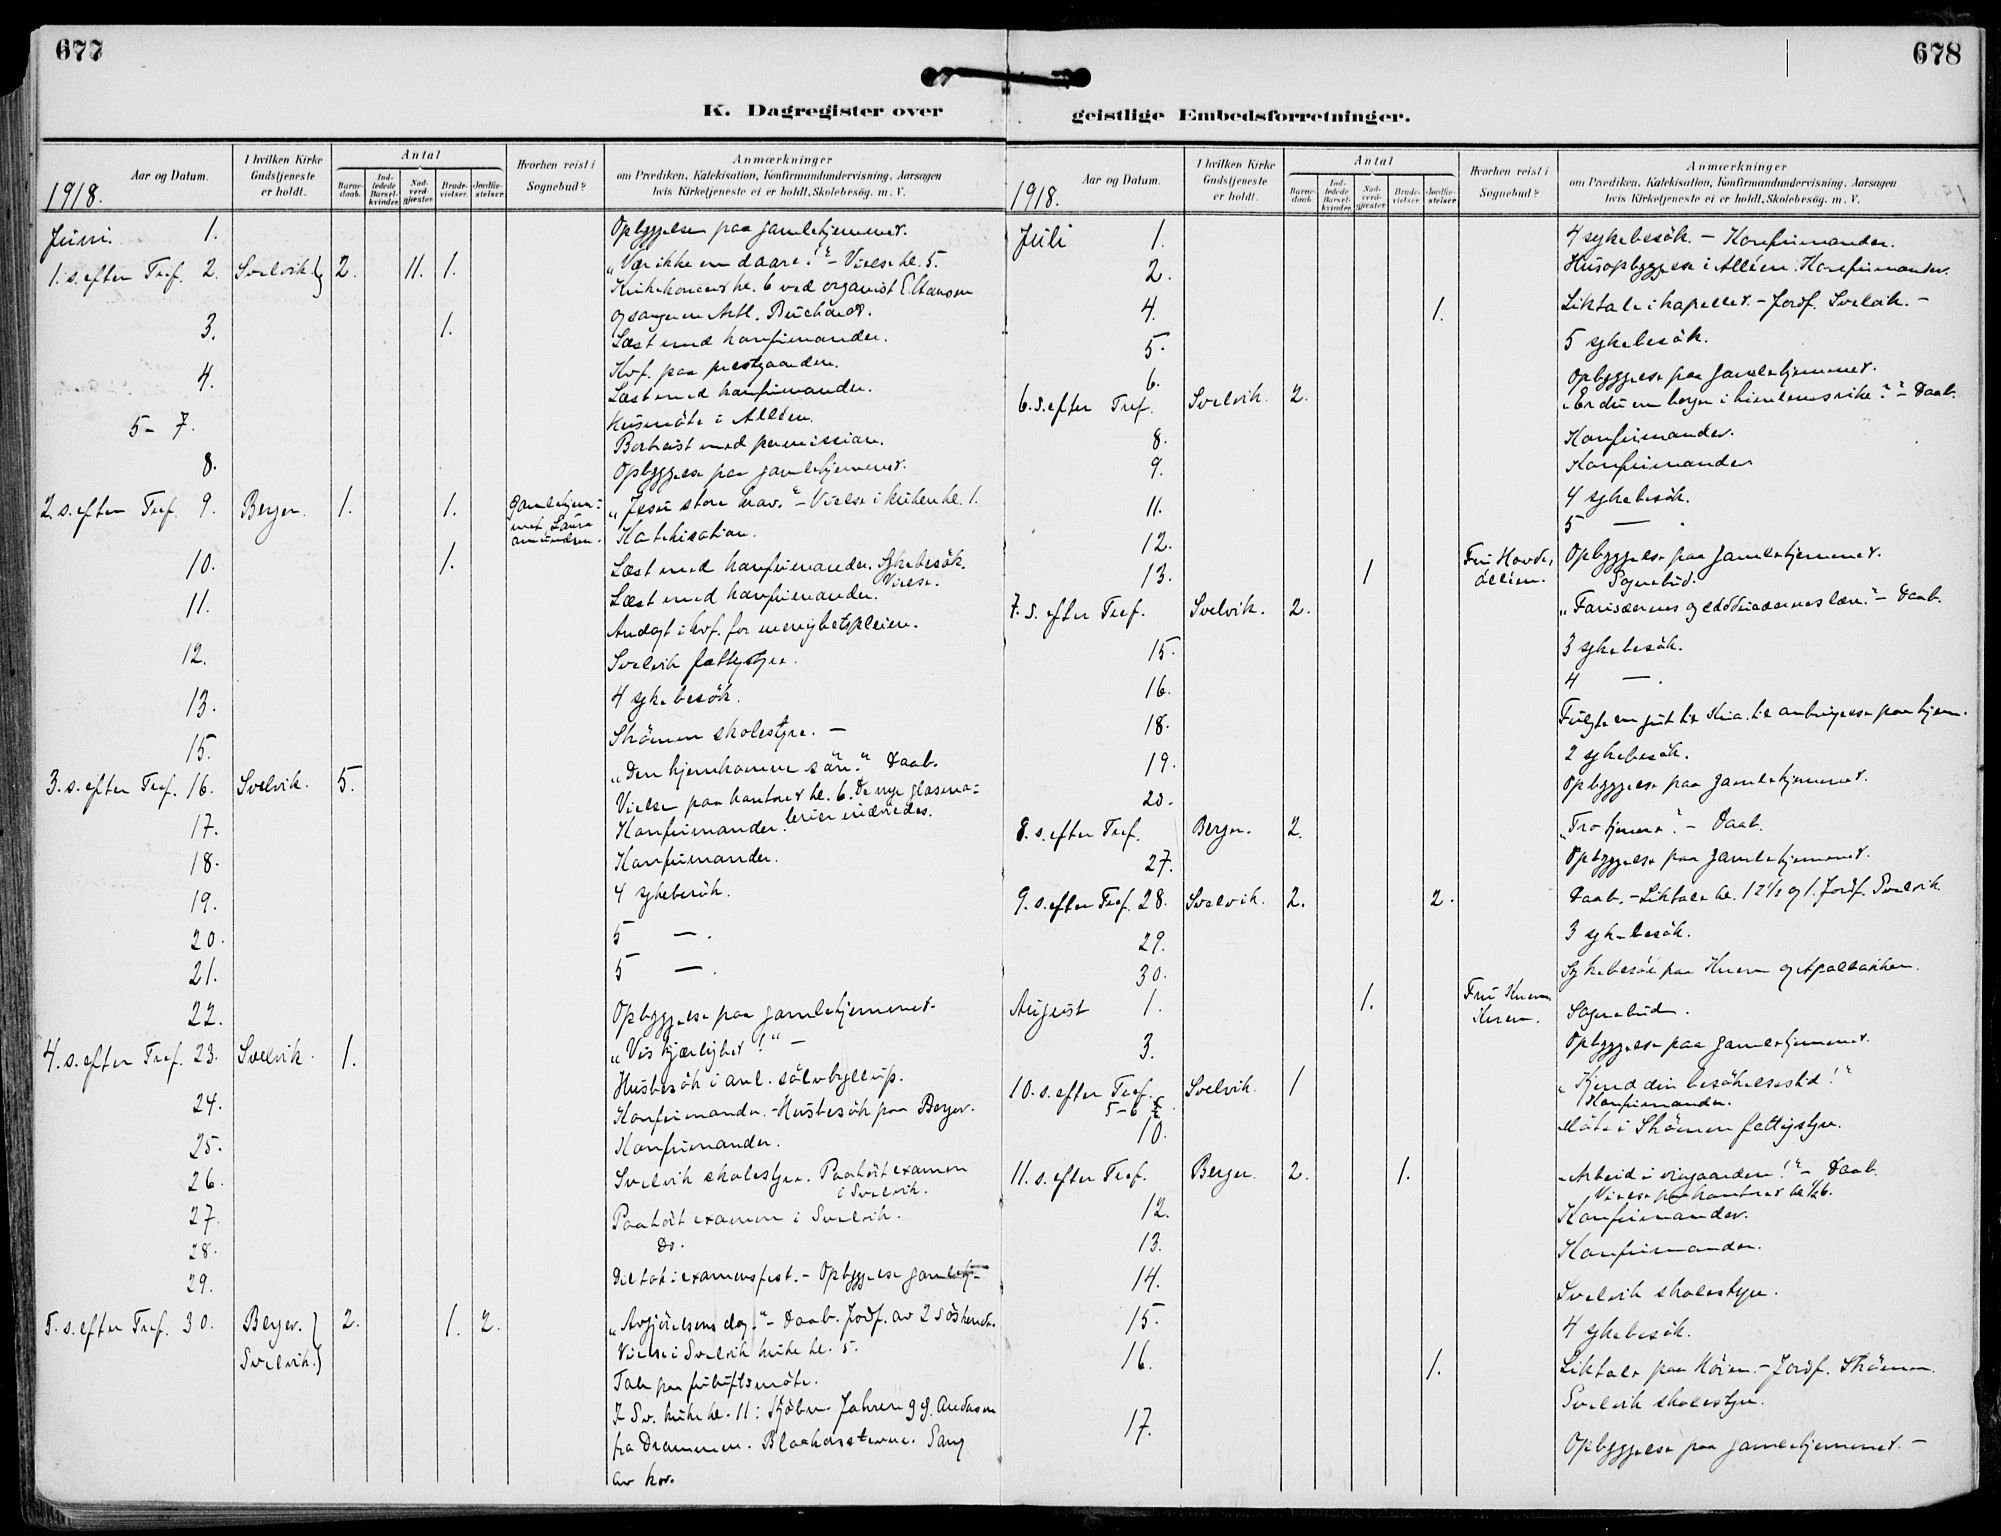 677
K. Dagregister over
Aar og Datum.
I hvilken Kirke Gudstjeneste er holdt.
Antal
Barne-daab.
Ind-ledede Barsel-kvinder.
Nad-verd-gjæster.
Brude-vielser.
Jordfæ-stelser.
Hvorhen reist i Sognebud?
Anmærkninger
om Prædiken, Katekisation, Konfirmandundervisning, Aarsagen
hvis Kirketjeneste ei er holdt, Skolebesøg. m. V.
1918.
Juni. 1. Opbyggelse paa gamlehjemmet.
1. s. efter Tref. 2. Svelvik. 2. 11. 1. „Vær ikke en daare!“ – Vielse kl. 5.
Kirkekoncert kl. 6 ved organist E. Hansen
og sangeren Artl.
3. 1. Læst med konfirmander.
Kvf. paa prestgaarden.
4. Læst med konfirmander.
Husmöte i Alléen.
5 – 7. Bortreist med permission.
8. Opbyggelse paa gamlehjemmet.
2. s. efter Tref. 9. Berger. 1. 1. Gamlehjem-
met Laura
Amundsen. „Jesu store krav.“ – Vielse i kirken kl. 1.
Katekisation.
10. 1. Læst med konfirmander. Sykebesök.
Vielse.
11. Læst med konfirmander.
Andagt i kvf. for menighetspleien.
12. Svelvik fattigstyre.
13. 4 sykebesök.
15. Strömm skolestyre. –
3. s. efter Tref. 16. Svelvik. 5. „Den hjemkomne sön.“ Daab.
Vielse paa kontoret kl. 6. De nye glasma-
lerier indviedes.
17. Konfirmander.
18. Konfirmander.
19. 4 sykebesök.
20. 5 — .
21. 5 — .
22. Opbyggelse paa gamlehjemmet.
4. s. efter Tref. 23. Svelvik. 1. „Vis kjærlighet!“ –
Husbesök i anl. sölvbryllup.
24. Konfirmander. – Husbesök paa Berger.
25. Konfirmander.
26. Svelvik skolestyre. Paahört examen
i Svelvik.
27. Paahört examen i Svelvik.
28. Do.
29. Deltok i examensfest. – Opbyggelse gamlehj.
5. s. efter Tref. 30. Berger. 2. 1. 2. „Avgjörelsens dag.“ – Daab. Jordf. av 2 söskende.
Svelvik. Vielse i Svelvik kirke kl. 5.
Tale paa friluftsmöte.
I Sv. kirke kl. 11: Andersen
fra Drammen. Blaakorsstevne. Sang
av kor.
678
geistlige Embedsforretninger.
Aar og Datum.
I hvilken Kirke Gudstjeneste er holdt.
Antal
Barne-daab.
Ind-ledede Barsel-kvinder.
Nad-verd-gjæster.
Brude-vielser.
Jordfæ-stelser.
Hvorhen reist i Sognebud?
Anmærkninger
om Prædiken, Katekisation, Konfirmandundervisning, Aarsagen
hvis Kirketjeneste ei er holdt, Skolebesøg. m. V.
1918.
Juli 1. 4 sykebesök. – Konfirmander.
2. Husopbyggelse i Alléen. Konfirmander.
4. 1. Liktale i kapellet. – Jordf. Svelvik. –
5. 5 sykebesök.
6. Opbyggelse paa gamlehjemmet.
6. s. efter Tref. Svelvik. 2. „Er du en borger i himlens rike?“ – Daab.
8. Konfirmander.
9. Konfirmander
11. 4 sykebesök.
12. 5 — .
13. 1 Fru Hovde,
Alléen. Opbyggelse paa gamlehjemmet.
Sognebud.
7. s. efter Tref. Svelvik. 2. „Farisæernes og sadducæernes lære.“ – Daab.
15. 3 sykebesök.
16. 4 — .
18. Fulgte en gut til Kria. til anbringelse paa hjem.
19. 2 sykebesök.
20. Opbyggelse paa gamlehjemmet.
8. s. efter Tref. Berger. 2. „Tro tjenere“. – Daab.
27. Opbyggelse paa gamlehjemmet.
9. s. efter Tref. 28. Svelvik. 2. 2. Daab. – Liktale kl. 12½ og 1. Jordf. Svelvik.
29. 3 sykebesök.
30. Sykebesök paa Knem og Apalbakken.
August 1. 1. Fru Knem,
Knem. Sognebud.
3. Opbyggelse paa gamlehjemmet.
10. s. efter Tref. Svelvik. 1 „Kjend din besökelsestid!“
5–6 Konfirmander.
10. Möte i Strömm fattigstyre.
11. s. efter Tref. Berger. 2. 1. „Arbeid i vingaarden!“ – Daab.
Vielse paa kontoret kl. ½6.
12. Konfirmander.
13. Konfirmander.
14. Svelvik skolestyre.
15. 4 sykebesök.
16. 1. Liktale paa – Jordf. Strömm.
Svelvik skolestyre.
17. Opbyggelse paa gamlehjemmet. –